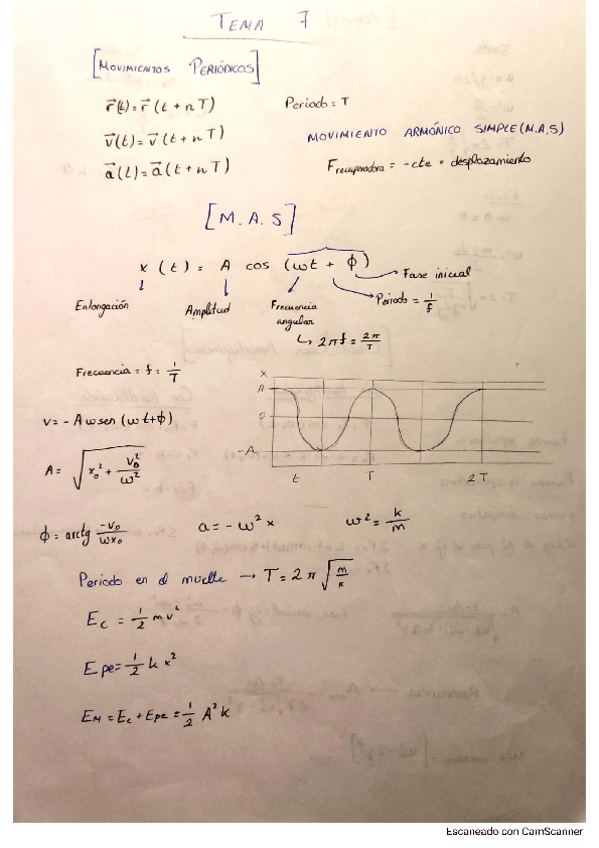 TEMA 7
[MOVIMIENTOS PERIÓDICOS]
r⃗(t)=r⃗(t+nT) Periodo=T
v⃗(t)=v⃗(t+nT) MOVIMIENTO ARMÓNICO SIMPLE (M.A.S)
a⃗(t)=a⃗(t+nT) Frecuperadora = -cte · desplazamiento
[M.A.S]
x(t) = A cos (ωt + ϕ)
Fase inicial
Enlongación Amplitud Frecuencia angular Periodo = 1/f
↳ 2πf = 2π/T
Frecuencia = f = 1/T
x
A
0
-A
t T 2T
v = -Aωsen(ωt+ϕ)
A = √(x₀² + v₀²/ω²)
ϕ = arctg -v₀/ωx₀ a = -ω²x ω² = k/m
Periodo en el muelle → T = 2π√(m/k)
Ec = 1/2 mv²
Epe = 1/2 kx²
EM = Ec + Epe = 1/2 A²k
Escaneado con CamScanner